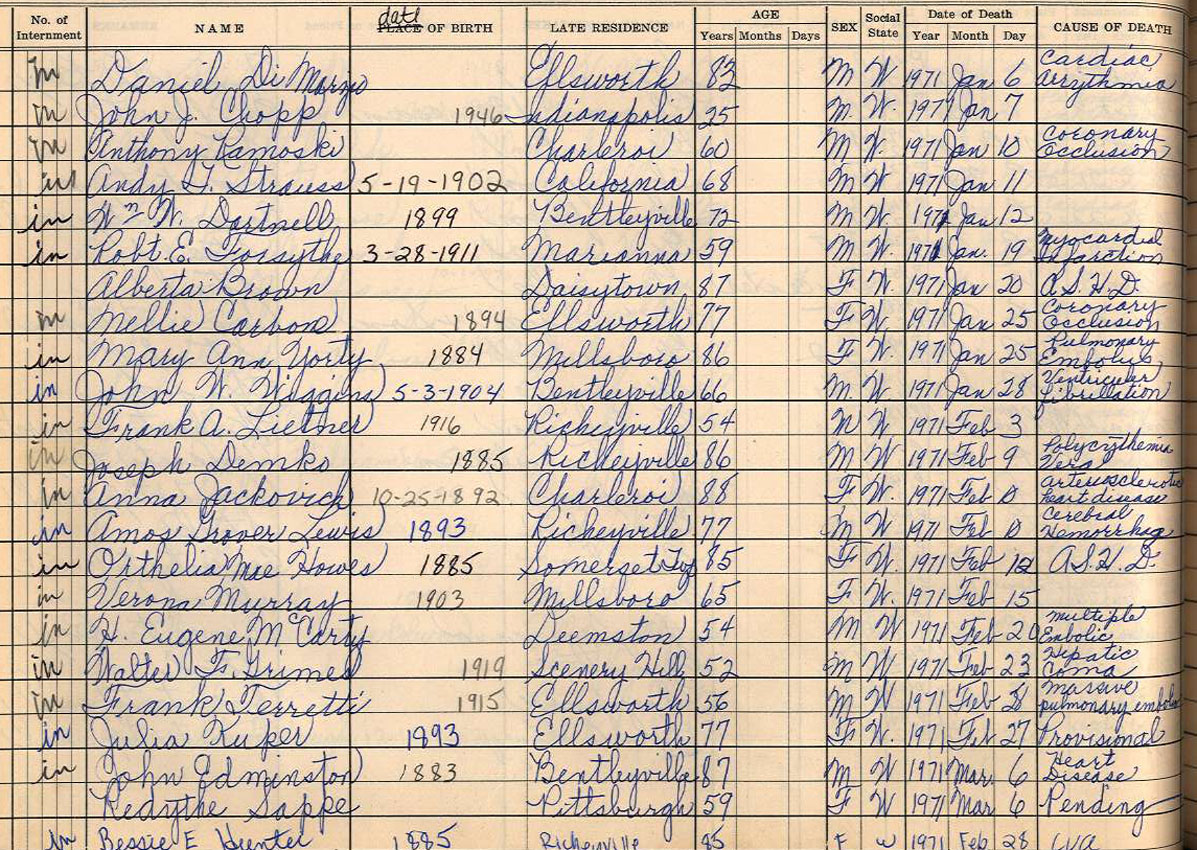 No. of Internment NAME date PLACE OF BIRTH LATE RESIDENCE AGE Years Months Days SEX Social State Date of Death Year Month Day CAUSE OF DEATH
in Daniel Di Marzo Ellsworth 82 M W 1971 Jan 6 Cardiac Arrythmia
in John J. Chopp 1946 Indianapolis 25 M. W. 1971 Jan 7
in Anthony Kamoski Charleroi 60 M W. 1971 Jan 10 Coronary Occlusion
Andy Strauss 5-19-1902 California 68 M W 1971 Jan 11
in Wm W. Dartnell 1899 Bentleyville 72 M W 1971 Jan 12
in Robt. E. Forsythe 3-28-1911 Marianna 59 M W. 1971 Jan. 19 Myocardial Infarction
Alberta Brown Daisytown 87 F W. 1971 Jan 20 A.S.H.D.
in Nellie Carbon 1894 Ellsworth 77 F W. 1971 Jan 25 Coronary Occlusion
in Mary Ann Yorty 1884 Millsboro 86 F W. 1971 Jan 25 Pulmonary Embolus
in John W. Wiggins 5-3-1904 Bentleyville 66 M. W. 1971 Jan 28 Ventricular Fibrillation
in Frank A. Lietner 1916 Richeyville 54 M W 1971 Feb 3
in Joseph Demko 1885 Richeyville 86 M W 1971 Feb 9 Polycythemia Vera
in Anna Jackovich 10-25-1892 Charleroi 88 F W. 1971 Feb Arteriosclerotic heart disease
in Amos Grover Lewis 1893 Richeyville 77 M W 1971 Feb Cerebral Hemorrhag
in Orthelia Mae Howes 1885 Somerset Twp 85 F W. 1971 Feb 12 A.S.H.D.
in Verona Murray 1903 Millsboro 65 F W. 1971 Feb 15
in H. Eugene McCarty Deemston 54 M W 1971 Feb 20 Multiple Embolic
in Walter F. Grimes 1919 Scenery Hill 52 M W 1971 Feb 23 Hepatic Coma
in Frank Terretti 1915 Ellsworth 56 M W 1971 Feb Massive pulmonary embol
in Julia Kuper 1893 Ellsworth 77 F W. 1971 Feb 27 Provisional
in John Edminston 1883 Bentleyville 87 M W 1971 Mar. 6 Heart Disease
Redythe Sappe Pittsburgh 59 F W 1971 Mar 6 Pending
in Bessie E Hunter 1885 Richeyville 85 F W 1971 Feb 28 CVA